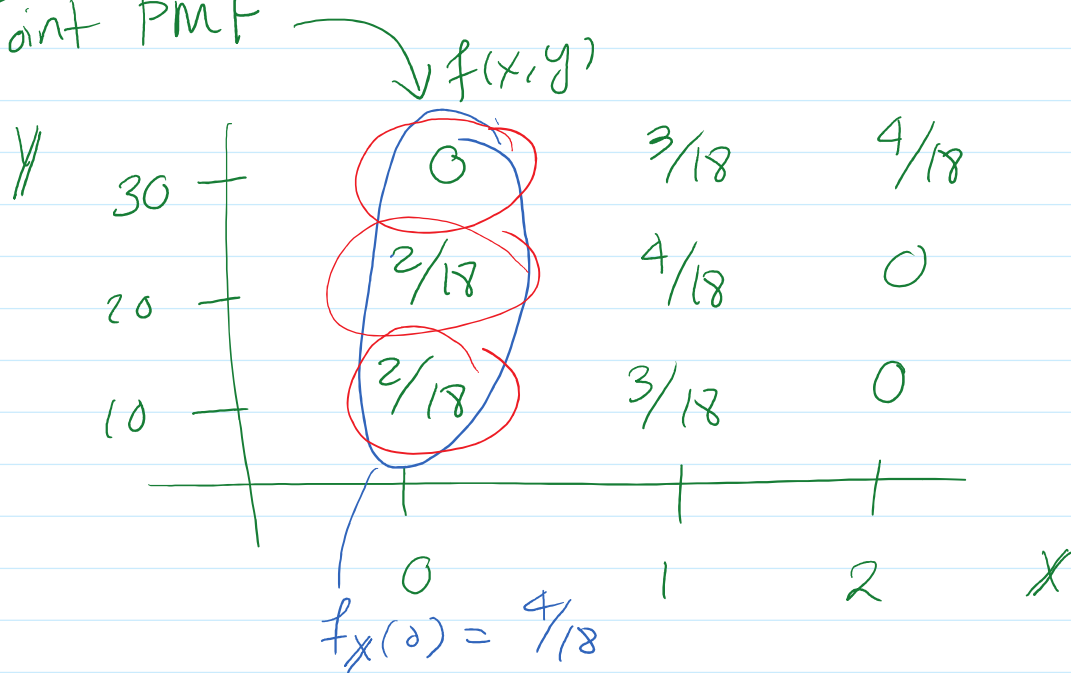 oint PMF
f(x,y)
Y
30 0 3/18 4/18
20 2/18 4/18 0
10 2/18 3/18 0
0 1 2 X
fX(0) = 4/18